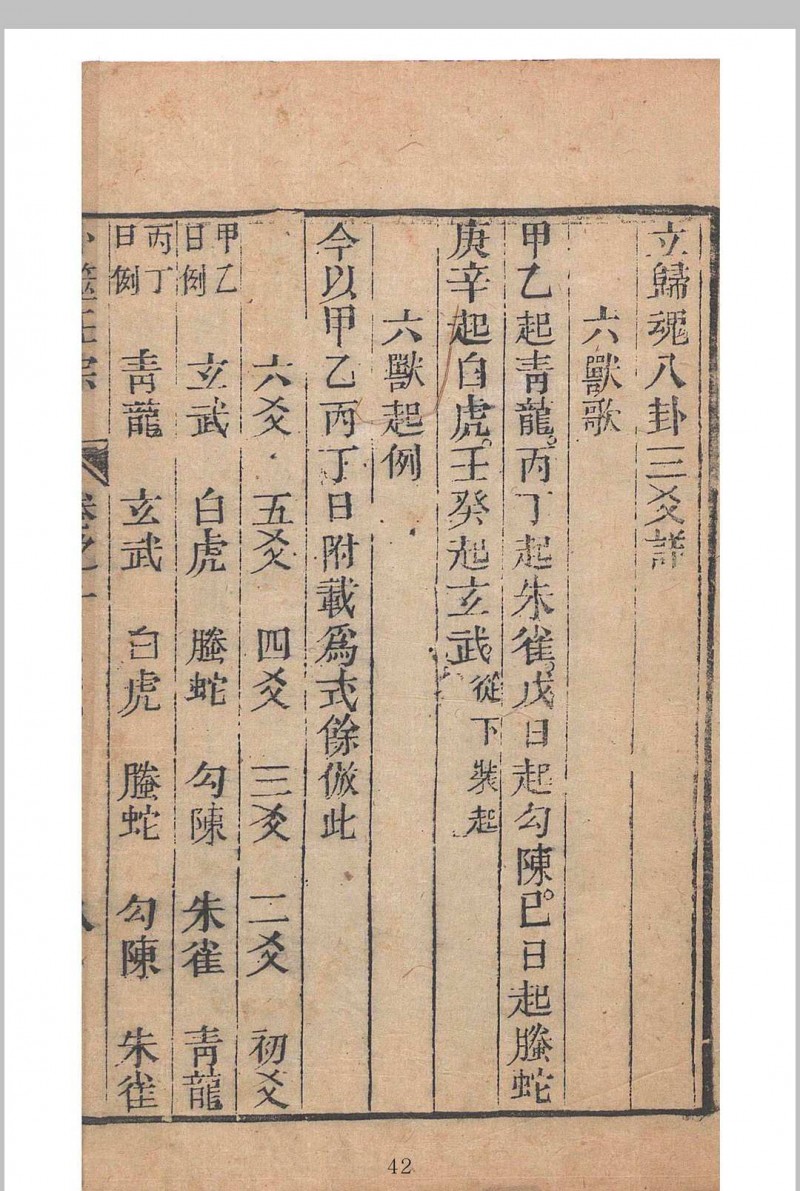 立歸魂八卦三爻詳
六獸歌
甲乙起青龍。丙丁起朱雀。戊日起勾陳。已日起螣蛇
庚辛起白虎。壬癸起玄武從下裝起
六獸起例
今以甲乙丙丁日附載爲式餘倣此
六爻 五爻 四爻 三爻 二爻 初爻
甲乙日例 玄武 白虎 螣蛇 勾陳 朱雀 青龍
丙丁日例 青龍 玄武 白虎 螣蛇 勾陳 朱雀
卜筮正宗 卷之一 八
42